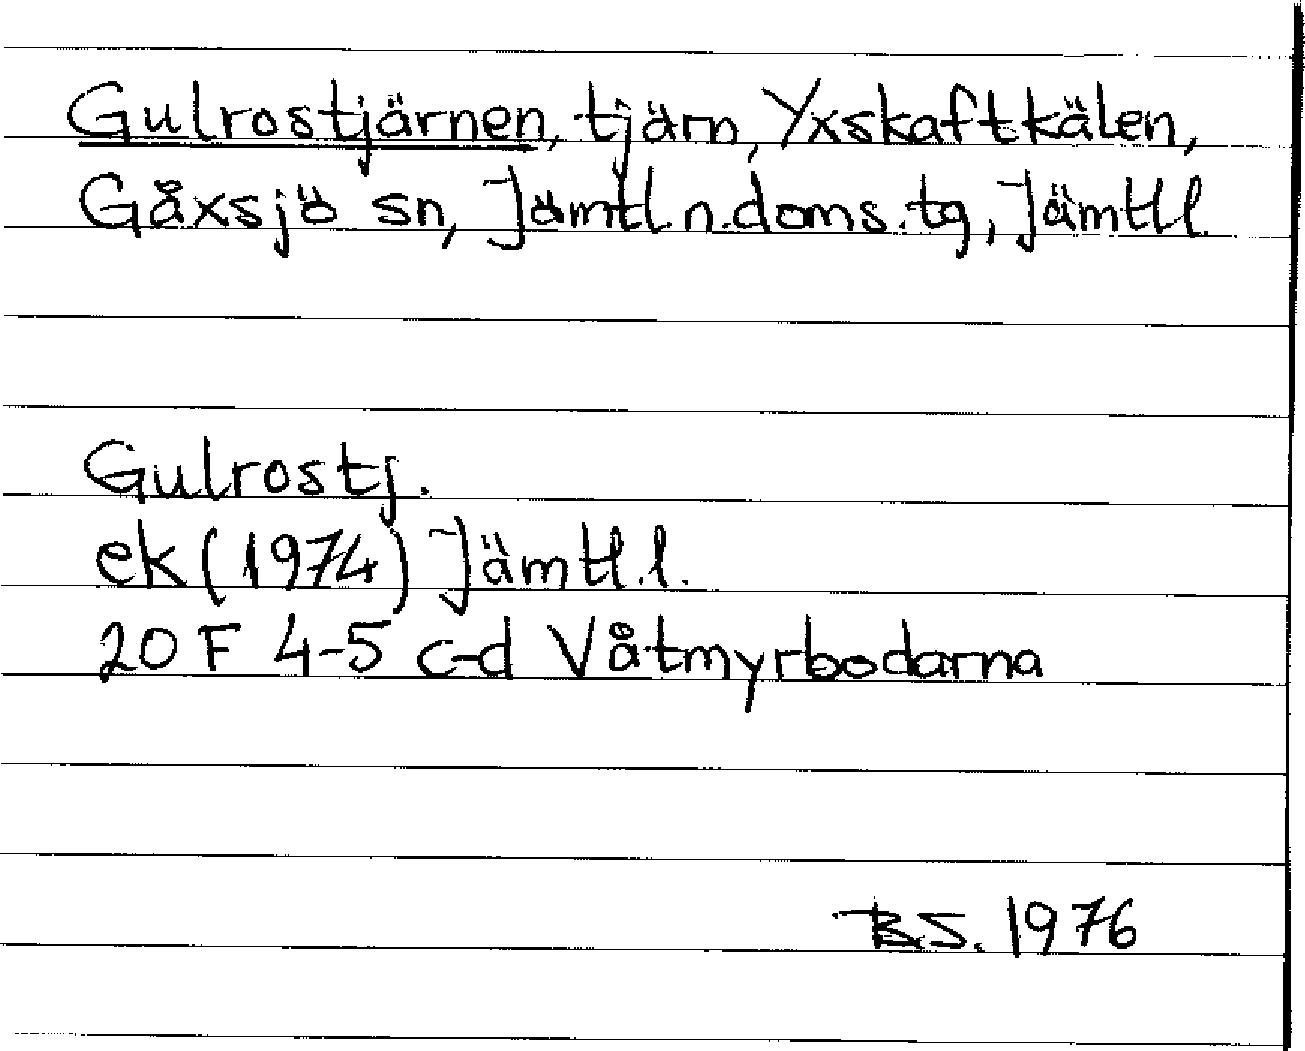 Gulrostjärnen, tjärn, Yxskaftkälen,
Gåxsjö sn, Jämtl.n.doms.tg, Jämtl l.
Gulrostj.
ek (1974) Jämtl.l.
20 F 4-5 c-d Våtmyrbodarna
B.S. 1976